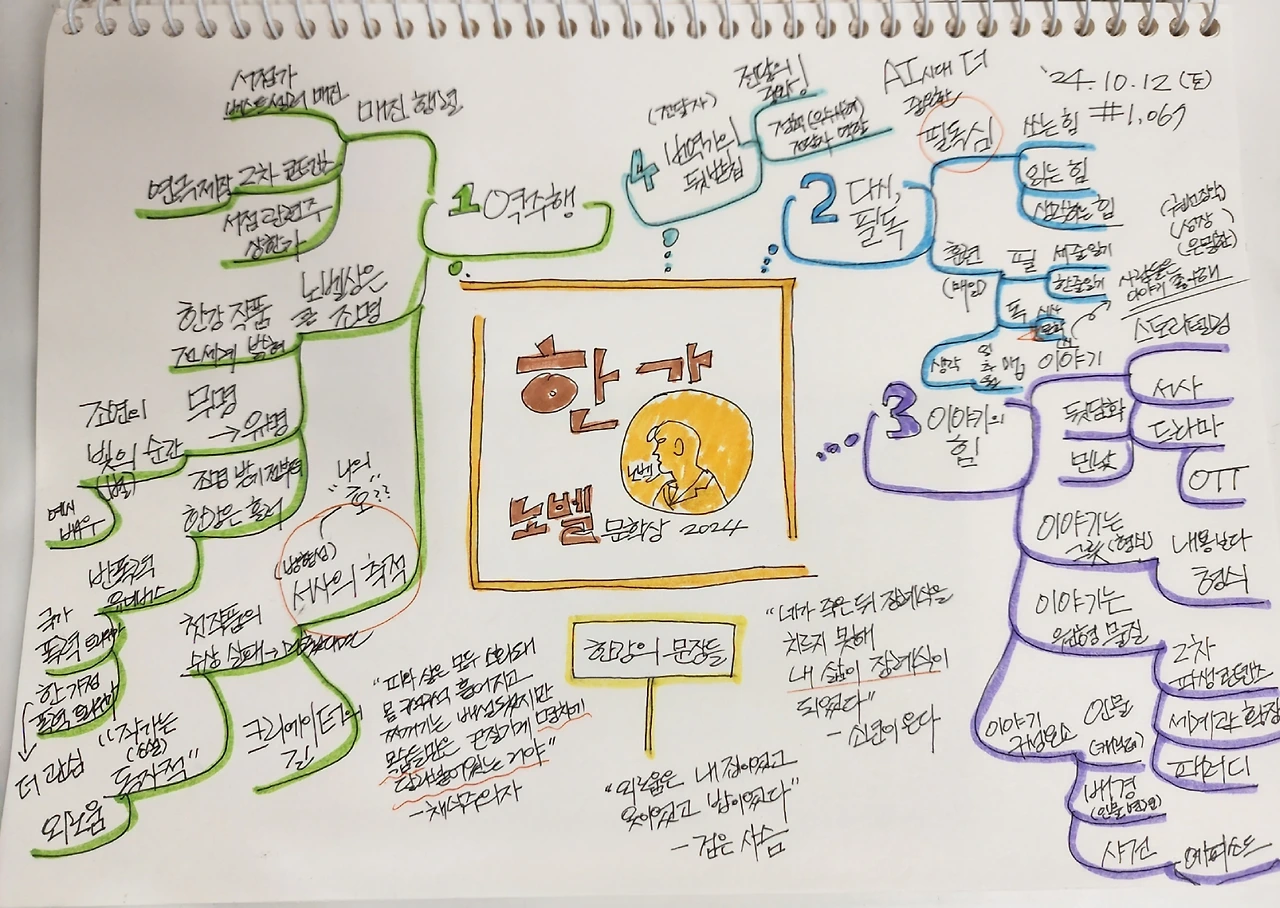 '24.10.12 (토)
#1,067
한강
노벨
노벨 문학상 2024
1 역주행
매진 행렬
서점가
베스트셀러 매진
2차 콘텐츠
연극제작
서점 관련주
상한가
노벨상은
큰 조명
한강 작품
전세계 발현
무명
→ 유명
조연이
빛의 순간
(별)
예시
배우
조명 받기 전부터
한강은 흘러
반폭력
유니버스
국가
폭력 트라우마
한 가정
폭력 트라우마
더 관심
나의
"호??
(방향성)
서사의 축적
첫작품의
수상 실패 →
"작가는
(소설)
동사적"
외로움
크리에이터의
길
2 다시,
필독
AI시대 더
중요한
필독심
쓰는 힘
읽는 힘
생각하는 힘
훈련
(매일)
필
세줄일기
한줄일기
독
생각
3 이야기의
힘
이야기
스토리텔링
서사
드라마
OTT
뒷담화
민낯
(성장)
(은밀한)
사람들은
이야기 좋아해
이야기는
그릇 (형식)
내용보다
형식
이야기는
유난형 물질
2차
파생콘텐츠
세계관 확장
패러디
이야기
구성요소
인물
(캐릭터)
배경
사건
에피소드
4 번역가의
뒷받침
(전달자)
전달의
정확!
전달자 역할
한강의 문장들
"피와 살은 모두 소화돼
몸 구석구석 흩어지고
찌꺼기는 배설되었지만
목숨들만은 끈질기게 명치에
달라붙어있는 거야"
- 채식주의자
"외로움은 내 집이었고
옷이었고 밥이었다"
- 검은 사슴
"네가 죽은 뒤 장례식을
치르지 못해
내 삶이 장례식이
되었다"
- 소년이 온다